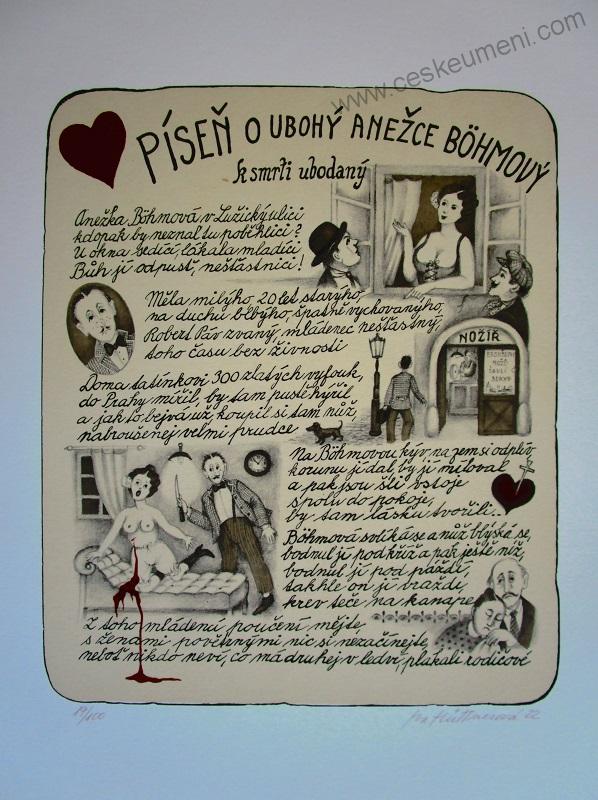 www.ceskeumeni.com
PÍSEŇ O UBOHÝ ANEŽCE BÖHMOVÝ
k smrti ubodaný
Anežka Böhmová v Lužický ulici
kdopak by neznal tu poběhlici?
U okna sedíc, lákala mladíci
Bůh jí odpusť, nešťastnici!
Měla milýho, 20 let starýho,
na duchu blbýho, špatně vychovanýho,
Robert Pár zvaný, mládenec nešťastný,
toho času bez živnosti
NOŽÍŘ
Doma tatínkovi 300 zlatých vyfouk,
do Prahy mířil, by tam pustě hýřil
a jak to bejvá už, koupil si tam nůž,
nabroušenej velmi prudce
Na Böhmovou kýv, na zem si odpliv,
korunu jí dal, by jí miloval
a pak jsou šli vstoje
spolu do pokoje,
by tam lásku tvořili..
Böhmová svlíká se a nůž blýská se,
bodnul jí pod kříž a pak ještě níž,
bodnul jí pod páždí,
takhle on jí vraždí,
krev teče na kanape
Z toho mládenci poučení mějte,
s ženami pověstnými nic si nezačínejte,
neboť nikdo neví, co má druhej v ledví, plakali rodičové
19/100